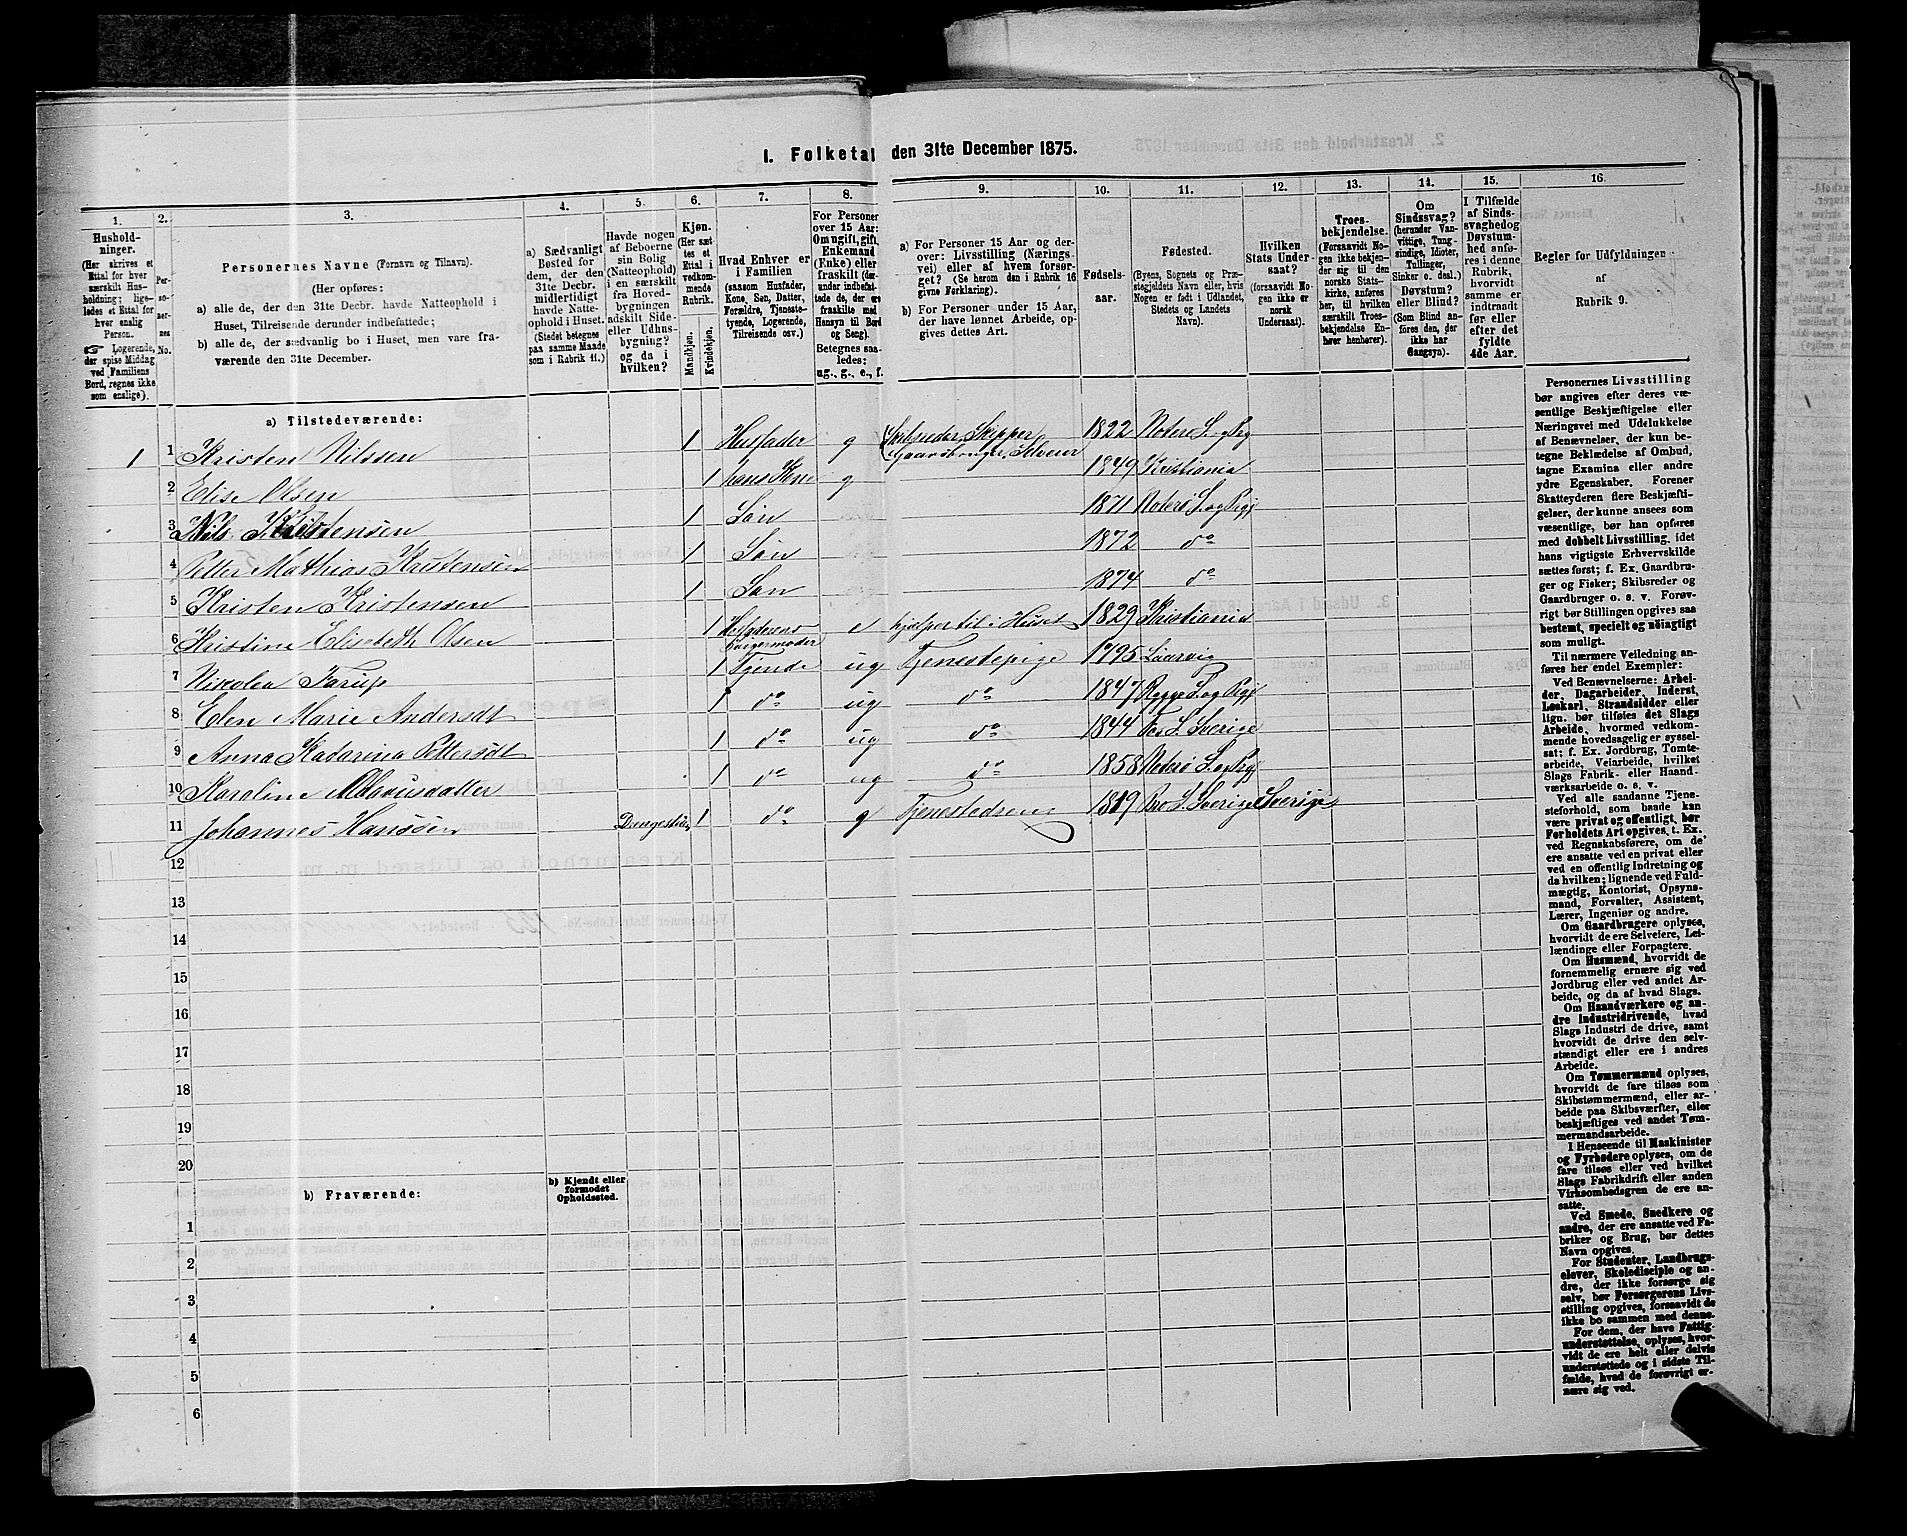 I. Folketal den 31te December 1875.
1. 2. 3. 4. 5. 6. 7. 8. 9. 10. 11. 12. 13. 14. 15. 16.
Hushold-
ninger.
(Her skrives et
Ettal for hver
særskilt Hus-
holdning; lige-
ledes et Ettal for
hver enslig
Person.
☞ Logerende,
der spise Middag
ved Familiens
Bord, regnes ikke
som enslige).
Per-
so-
ner-
nes
No.
Personernes Navne (Fornavn og Tilnavn).
(Her opføres:
a) alle de, der den 31te Decbr. havde Natteophold i
Huset, Tilreisende derunder indbefattede;
b) alle de, der sædvanlig bo i Huset, men vare fra-
værende den 31te December.
a) Sædvanligt
Bosted for
dem, der den
31te Decbr.
midlertidigt
havde Natte-
ophold i Huset.
(Stedet betegnes
paa samme Maade
som i Rubrik 11.)
Havde nogen
af Beboerne
sin Bolig
(Natteophold)
i en særskilt
fra Hoved-
bygningen
adskilt Side-
eller Udhus-
bygning?
og da i
hvilken?
Kjøn.
(Her sæt
tes et
Ettal i
vedkom-
mende
Rubrik.
Mandkjøn.
Kvindekjøn.
Hvad Enhver er
i Familien
(saasom Husfader,
Kone, Søn, Datter,
Forældre, Tjeneste-
tyende, Logerende,
Tilreisende osv.)
For Personer
over 15 Aar:
Om ugift, gift,
Enkemand
(Enke) eller
fraskilt (der-
under indbefat-
tede de, der ere
fraskilte med
Hensyn til Bord
og Seng).
Betegnes saa-
ledes:
ug., g., e., f.
a) For Personer 15 Aar og der-
over: Livsstilling (Nærings-
vei) eller af hvem forsør-
get? (Se herom den i Rubrik 16
givne Forklaring).
b) For Personer under 15 Aar,
der have lønnet Arbeide, op-
gives dettes Art.
Fødsels-
aar.
Fødested.
(Byens, Sognets og Præ-
stegjeldets Navn eller, hvis
Nogen er født i Udlandet,
Stedets og Landets
Navn).
Hvilken
Stats Under-
saat?
(forsaavidt No-
gen ikke er
norsk
Undersaat).
Troes-
bekjendelse.
(Forsaavidt No-
gen ikke bekjen-
der sig til den
norske Stats-
kirke, anføres
her, til hvilken
særskilt Troes-
bekjendelse En-
hver henhører).
Om
Sindssvag?
(herunder Van-
vittige, Tung-
sindige, Idioter,
Tullinger,
Sinker o. desl.)
Døvstum?
eller Blind?
(Som Blind an-
føres den, der
ikke har
Gangsyn).
I Tilfælde
af Sinds-
svaghed og
Døvstum-
hed anfø-
res i denne
Rubrik,
hvorvidt
samme er
indtraadt
før eller
efter det
fyldte
4de Aar.
Regler for Udfyldningen
af
Rubrik 9.
a) Tilstedeværende:
1 1 Kristen Nilssen 1 Husfader g Skibsreder, Skipper Gaardbruger, Selveier 1822 Noterø S. og Pgj
2 Elise Olsen 1 hans Kone g 1849 Kristiania
3 Nils Kristensen 1 Søn 1871 Noterø S. og Pgj
4 Petter Mathias Kristensen 1 Søn 1872 do
5 Kristen Kristensen 1 Søn 1874 do
6 Kristine Elisebeth Olsen 1 Husfaderens Svigermoder e hjælper til i Huset 1829 Kristiania
7 Nikolea Tarup 1 Tjende ug Tjenestepige 1795 Laurvig
8 Elen Marie Andersdt 1 do ug do 1847 Rygge S. og Pgj
9 Anna Katarina Pettersdt 1 do ug do 1844 S. Sverige
10 Karoline Olausdatter 1 do ug do 1858 Noterø S. og Pgj
11 Johannes Hanssen Drengestuen 1 do g Tjenestedreng 1849 S. Sverige Sverige
12
13
14
15
16
17
18
19
20
b) Fraværende:
b) Kjendt eller
formodet
Opholdssted.
1
2
3
4
5
6
Personernes Livsstilling
bør angives efter deres væ-
sentlige Beskjæftigelse eller
Næringsvei med Udelukkelse
af Benævnelser, der kun be-
tegne Beklædelse af Ombud,
tagne Examina eller andre
ydre Egenskaber. Forener
Skatteyderen flere Beskjæfti-
gelser, der kunne ansees som
væsentlige, bør han opføres
med dobbelt Livsstilling, idet
hans vigtigste Erhvervskilde
sættes først; f. Ex. Gaardbru-
ger og Fisker; Skibsreder og
Gaardbruger o. s. v. Forøv-
rigt bør Stillingen opgives saa
bestemt, specielt og nøiagtigt
som muligt.
Til nærmere Veiledning an-
føres her endel Exempler:
Ved Benævnelserne: Arbei-
der, Dagarbeider, Inderst,
Løskarl, Strandsidder eller
lign. bør tilføies det Slags
Arbeide, hvormed vedkom-
mende hovedsagelig er syssel-
sat; f. Ex. Jordbrug, Tomte-
arbeide, Veiarbeide, hvilket
Slags Fabrik- eller Haand-
værksarbeide o. s. v.
Ved alle saadanne Tjene-
steforhold, som baade kan
være privat og offentligt, bør
Forholdets Art opgives, t. Ex.
ved Regnskabsførere, om de
ere ansatte ved en privat eller
ved en offentlig Indretning og
da hvilken; lignende ved Fuld-
mægtig, Kontorist, Opsyns-
mand, Forvalter, Assistent,
Lærer, Ingeniør og andre.
Om Gaardbrugere oplyses,
hvorvidt de ere Selveiere, Lei-
lændinge eller Forpagtere.
Om Husmænd, hvorvidt de
fornemmelig ernære sig ved
Jordbrug eller ved andet Ar-
beide, og da af hvad Slags.
Om Haandværkere og an-
dre Industridrivende, hvad
Slags Industri de drive, samt
hvorvidt de drive den selv-
stændigt eller ere i andres
Arbeide.
Om Tømmermænd oplyses,
hvorvidt de fare tilsøs som
Skibstømmermænd, eller ar-
beide paa Skibsværfter, eller
beskjæftiges ved andet Tøm-
mermandsarbeide.
I Henseende til Maskinister
og Fyrbødere oplyses, om de
fare tilsøs eller ved hvilket
Slags Fabrikdrift eller anden
Virksomhedsgren de ere an-
satte.
Ved Smede, Snedkere og
andre, der ere ansatte ved Fa-
briker og Brug, bør dettes
Navn opgives.
For Studenter, Landbrugs-
elever, Skoledisciple og an-
dre, der ikke forsørge sig
selv, bør Forsørgerens Livs-
stilling opgives, forsaavidt de
ikke bo sammen med denne.
For dem, der have Fattig-
understøttelse, oplyses, hvor-
vidt de ere helt eller delvis
understøttede og i sidste Til-
fælde, hvad de forøvrigt er-
nære sig ved.